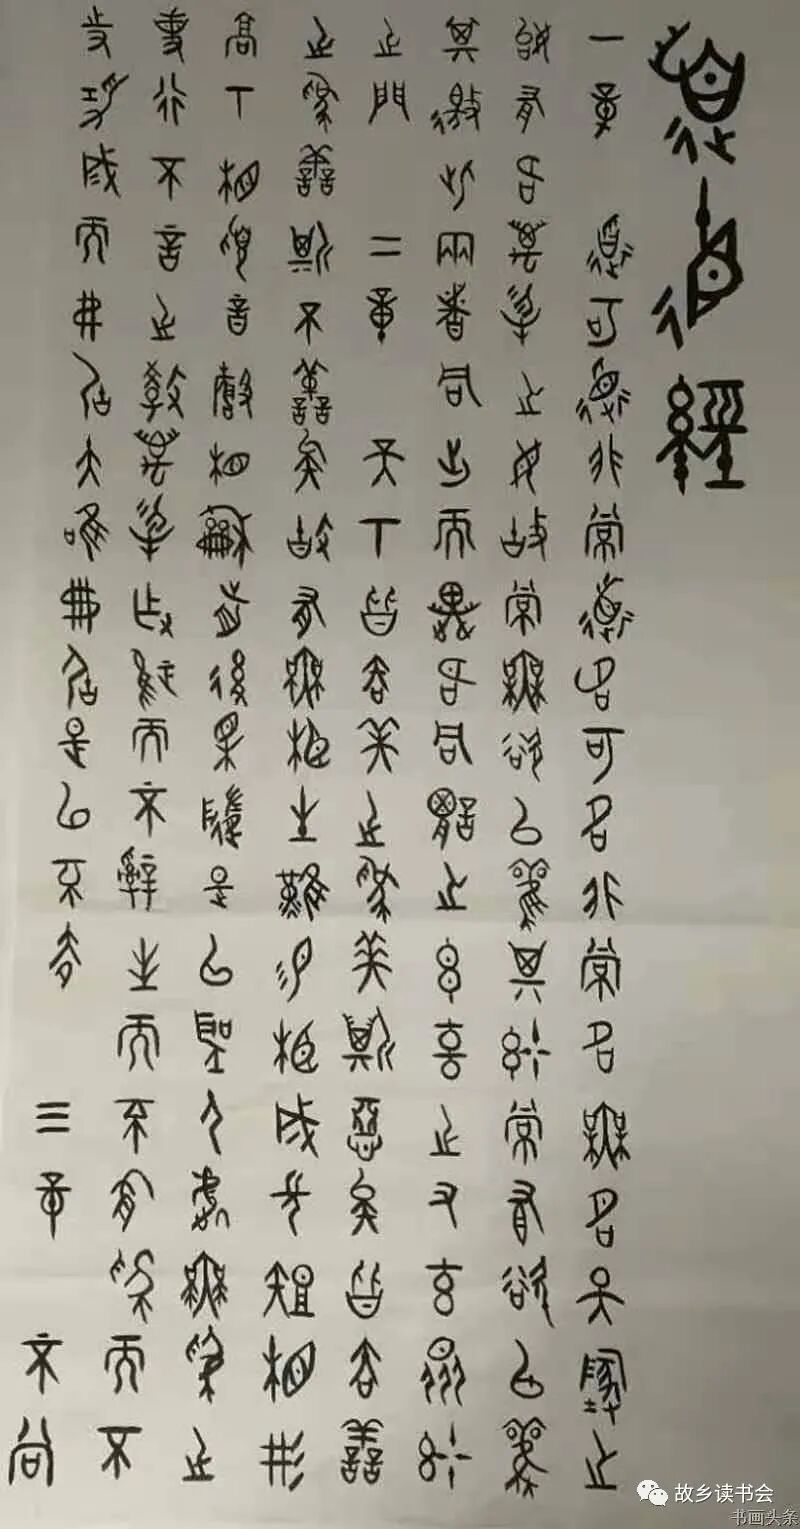 道德經
一章 道可道非常道名可名非常名無名天地之
始有名萬物之母故常無欲以觀其妙常有欲以觀
其徼此兩者同出而異名同謂之玄玄之又玄眾妙
之門 二章 天下皆知美之為美斯惡矣皆知善
之為善斯不善矣故有無相生難易相成長短相形
高下相傾音聲相和前後相隨是以聖人處無為之
事行不言之教萬物作焉而不辭生而不有為而不
恃功成而弗居夫唯弗居是以不去 三章 不尚
故乡读书会
书画头条